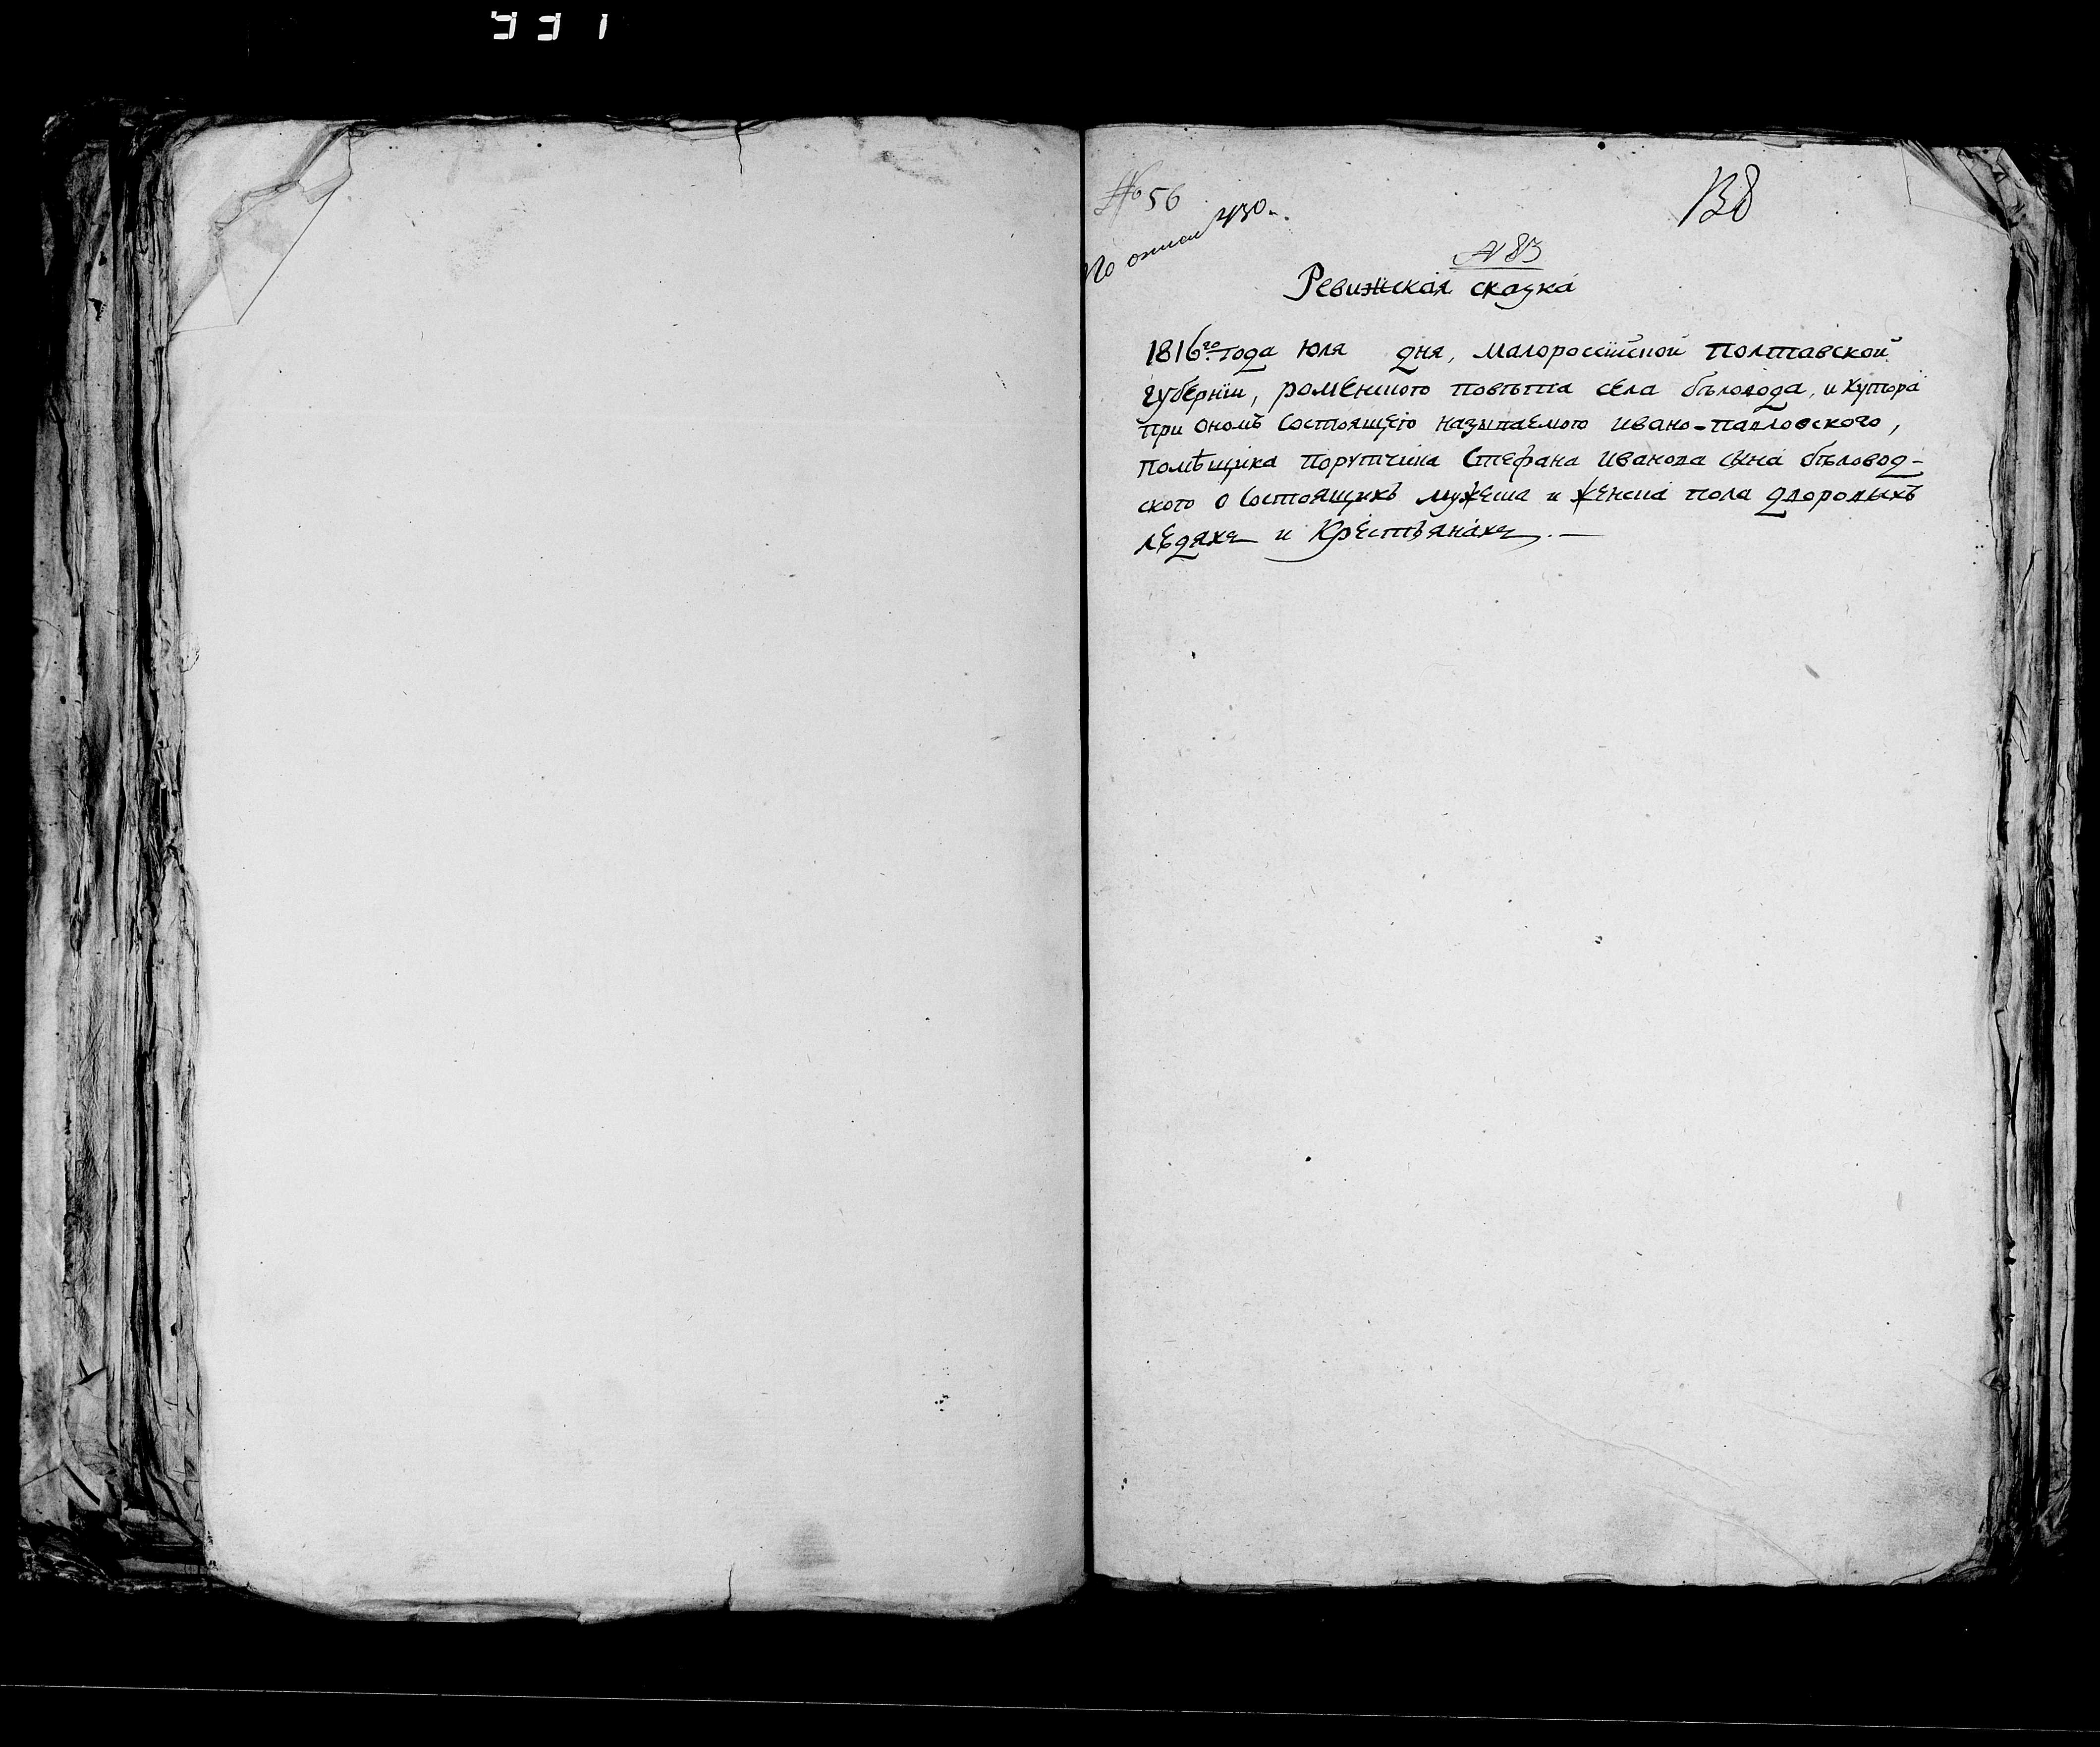 331
№ 56
По описи 430
138
№ 83
Ревизская сказка
1816го года июля дня, Малороссійской Полтавской
губерніи, роменского повѣта села бѣловода, и хутора
при ономъ состоящего называемого Ивано-павловского,
помѣщика порутчика Стефана иванова сына бѣловод-
ского о состоящихъ мужеска и женска пола дворовыхъ
людяхъ и крестьянахъ. —